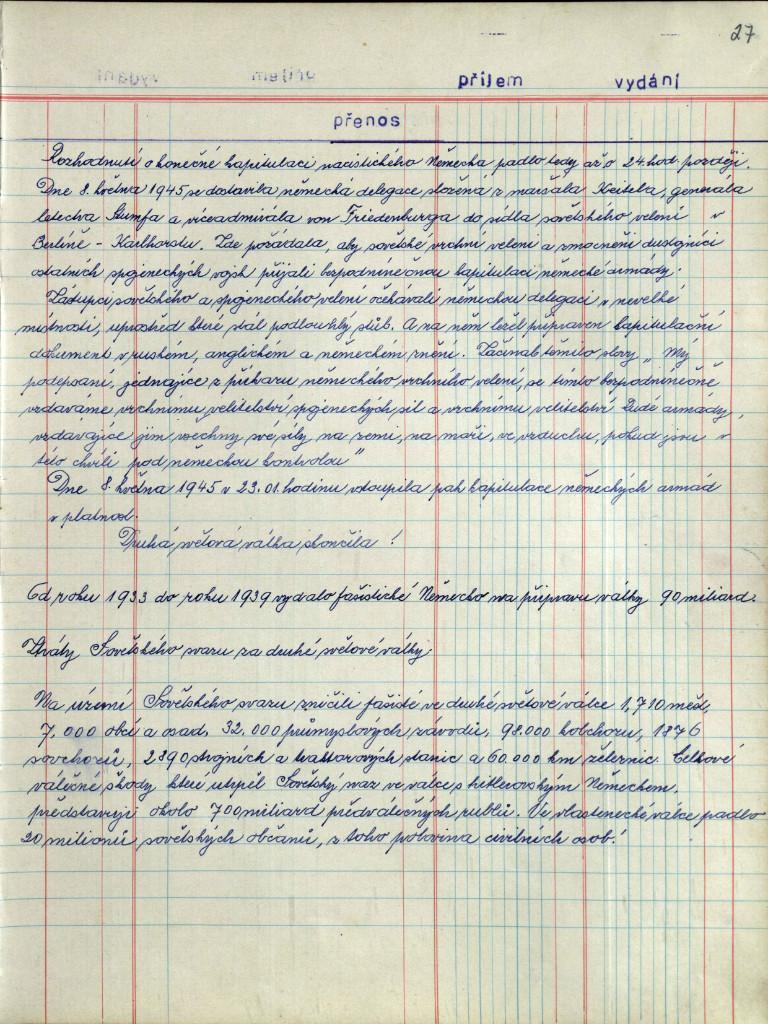 27
příjem vydání
přenos
Rozhodnutí o konečné kapitulaci nacistického Německa padlo tedy až o 24.hod. později.
Dne 8. května 1945 se dostavila německá delegace složená z maršála Keitela, generála
letectva Stumfa a viceadmirála von Friedenburga do sídla sovětského velení v
Berlíně - Karlhorstu. Zde požádala, aby sovětské vrchní velení a zmocnění dustojníci
ostatních spojeneckých vojsk přijali bezpodmínečnou kapitulaci německé armády.
Zástupci sovětského a spojeneckého velení očekávali německou delegaci v nevelké
místnosti, uprostřed které stál podlouhlý stůl. A na něm ležel připraven kapitulační
dokument v ruském, anglickém a německém znění. Začínal těmito slovy „ My
podepsaní, jednajíce z příkazu německého vrchního velení, se tímto bezpodmínečně
vzdáváme vrchnímu velitelství spojeneckých sil a vrchnímu velitelství Rudé armády,
vzdávajíce jim všechny své síly na zemi, na moři, ve vzduchu, pokud jsou v
této chvíli pod německou kontrolou"
Dne 8. května 1945 v 23.01. hodinu vstoupila pak kapitulace německých armád
v platnost.
Druhá světová válka skončila !
Od roku 1933 do roku 1939 vydalo fašistické Německo na přípravu války 90 miliard.
Ztráty Sovětského svazu za druhé světové války.
Na území Sovětského svazu zničili fašisté ve druhé světové válce 1,710 měst,
7,000 obcí a osad, 32.000 průmyslových závodů, 98.000 kolchozu, 1876
sovchozů, 2890 strojních a traktorových stanic a 60.000 km železnic. Celkové
válečné škody které utrpěl Sovětský svaz ve válce s hitlerovským Německem,
představují okolo 700 miliard předválečných rublů. Ve vlastenecké válce padlo
20 milionů sovětských občanů, z toho polovina civilních osob!